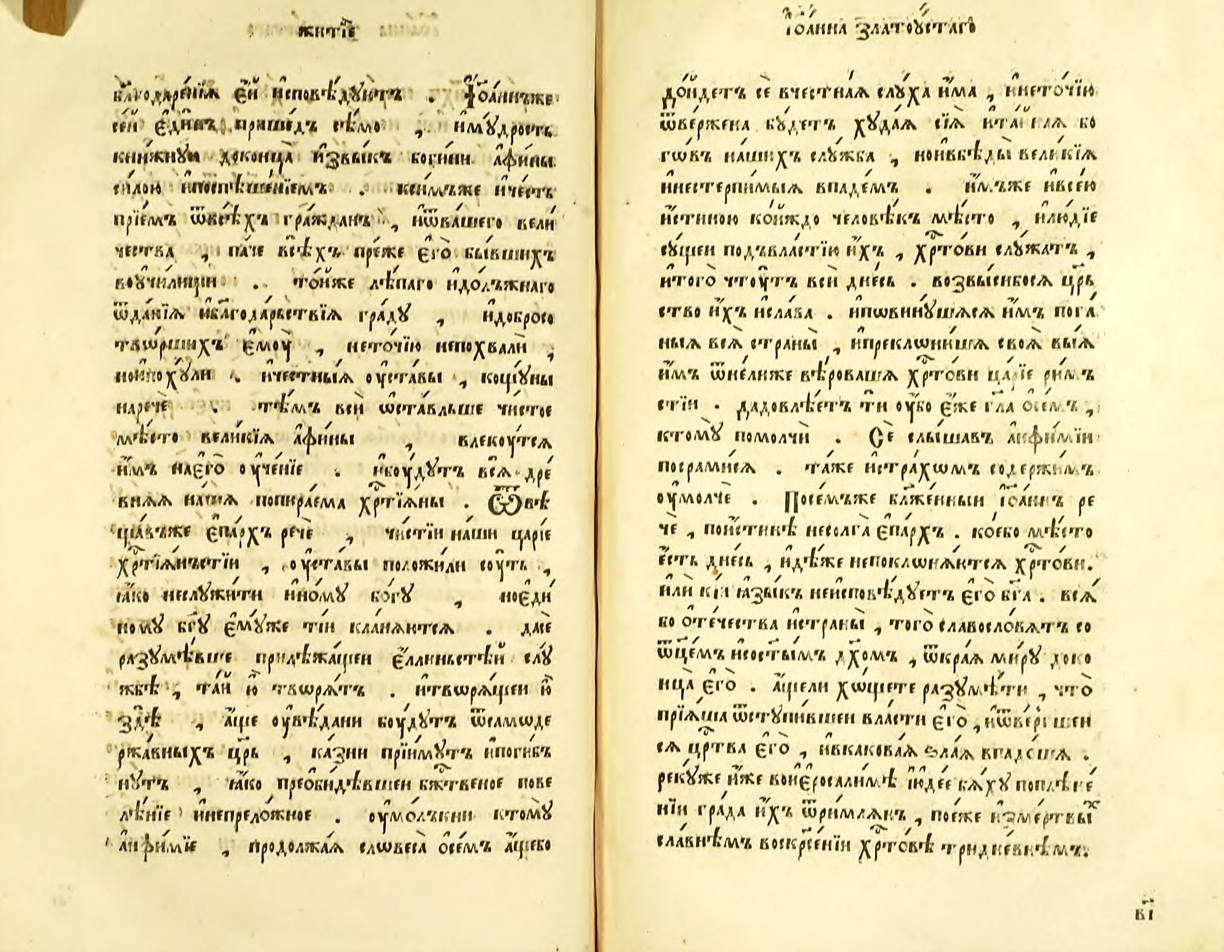 житїе
бл҃годаре́нїѧ є҆й и҆сповѣ́дꙋютъ . І҆ѡа́ннъже
се́й є҆ди́нъ прише́дъ сѣ́мо , и҆мꙋ́дрость
кни́жнꙋю доконца̀ и҆звы́къ боги́ни а҆фи́ны
си́лою и҆поспѣше́нїемъ . ксимъже и҆че́сть
прїе́мъ ѿвсѣ́хъ гра́жданъ , и҆ѿва́шего вели́
чества , па́че всѣ́хъ пре́же є҆го̀ бы́вшихъ
воучи́лищи . то́йже лѣ́паго и҆до́лъжнаго
ѿда́нїѧ и҆благода́рьствїѧ гра́дꙋ , и҆до́бросо
тво́ршихъ є҆моу̀ , нето́чїю непохвалѝ ,
нои҆похꙋ́ли . и҆че́стныѧ оу҆ста́вы , кощꙋ́ны
наречѐ . тѣ́мъ всѝ ѡ҆ста́вльше чи́стое
мѣ́сто вели́кїѧ а҆фи́ны , влекоу́тсѧ
и҆́мъ наєго̀ оу҆че́нїе . и҆боу́дꙋтъ всѧ̀ дре́
внѧѧ на́ша попира́ема хрⷭ҇тїѧ́ны . Ѿвѣ
ща́въже є҆па́рхъ речѐ , чи́стїи на́ши ца́рїе
хрⷭ҇тїѧ́нъстїи , оу҆ста́вы положи́ли соу́ть ,
ꙗ҆́ко неслꙋжи́ти и҆но́мꙋ бо́гꙋ , ноє҆ди́
номꙋ бг҃ꙋ є҆мꙋ́же ті́и кла́нѧютсѧ . да́се
разꙋмѣ́вше прилѣжа́щеи є҆́ллиньстѣй слꙋ́
жбѣ , та́й ю҆̀ творѧ́тъ . и҆творѧ́щеи ю҆̀
здѣ̀ , а҆́ще оу҆вѣ́дани боу́дꙋтъ ѿсамоде
ржа́вныхъ цр҃ь , ка́зни прїи́мꙋтъ и҆поги́б
нꙋтъ , ꙗ҆́ко преѻби́дѣвшеи бж҃твеное пове
лѣ́нїе и҆непрело́жное . оу҆мо́лъкни ктомꙋ̀
а҆нѳи́мїе , продолжа́ѧ словеса̀ ѻ҆се́мъ а҆́щебо
І҆ѡа́нна златоꙋ́стаго
до́йдетъ сѐ вчестна́ѧ слꙋ́ха и҆́ма , и҆нето́чїю
ѿве́ржена бꙋ́детъ хꙋда́ѧ сїѧ̀ и҆та́инаѧ бо
гѡ́въ на́шихъ слꙋ́жба , нои҆вбѣ́ды вели́кїѧ
и҆нестерпи́мыѧ впаде́мъ . и҆́мъже и҆все́ю
и҆́стиною ко́йждо человѣ́къ мѣ́сто , и҆лю́дїе
сꙋ́щеи подъвла́стїю и҆́хъ , хрⷭ҇то́ви слꙋ́жатъ ,
и҆того̀ чтоу́тъ всѝ дне́сь . возвы́сибосѧ црⷭ҇ь
ство и҆́хъ и҆сла́ва . и҆пѡвинꙋ́шасѧ и҆́мъ пога́
ныѧ всѧ̀ страны̀ , и҆преклони́шѧ своѧ̀ вы́ѧ
и҆́мъ ѿне́лиже вѣ́ровашѧ хрⷭ҇то́ви ца́рїе ри́мъ
стїи . дадовлѣ́етъ ти оу҆́бо є҆́же гл҃а ѻ҆се́мъ ,
ктомꙋ̀ помолчѝ . Сѐ слы́шавъ а҆нѳи́мїи
посрами́сѧ . та́же и҆стра́хомъ содержи́мъ
оу҆молчѐ . Посе́мъже бл҃же́нныи і҆ѡа́ннъ ре
чѐ , пои҆́стинѣ несолга̀ є҆па́рхъ . ко́ебо мѣ́сто
є҆́сть дне́сь , и҆дѣ́же непоклонѧ́ютсѧ хрⷭ҇то́ви.
и҆лѝ кі́и ꙗ҆зы́къ неи҆сповѣ́дꙋетъ є҆го̀ бг҃а . всѧ́
бо ѻте́чества и҆страны̀ , того̀ славосло́вѧтъ со
ѿце́мъ и҆состы́мъ дх҃омъ , ѿкра́ѧ ми́рꙋ доко
нца̀ є҆го̀ . а҆́щели хо́щете разꙋмѣ́ти , что̀
прїѧ́ша ѿстꙋпи́вшеи вла́сти є҆го̀ , и҆ѿве́ргшеи
сѧ црⷭ҇тва є҆го̀ , и҆вкакова́ѧ ѕла́ѧ впадо́ша .
рекꙋ́же и҆́же воие҆росали́мѣ і҆юде́е бѧ́хꙋ поплѣне́
нїи гра́да и҆́хъ ѿри́млѧнъ , пое́же и҆зме́ртвыⷯ
сла́внѣмъ воскрⷭ҇е́нїи хрⷭ҇то́вѣ тридне́внѣмъ.
в҃і